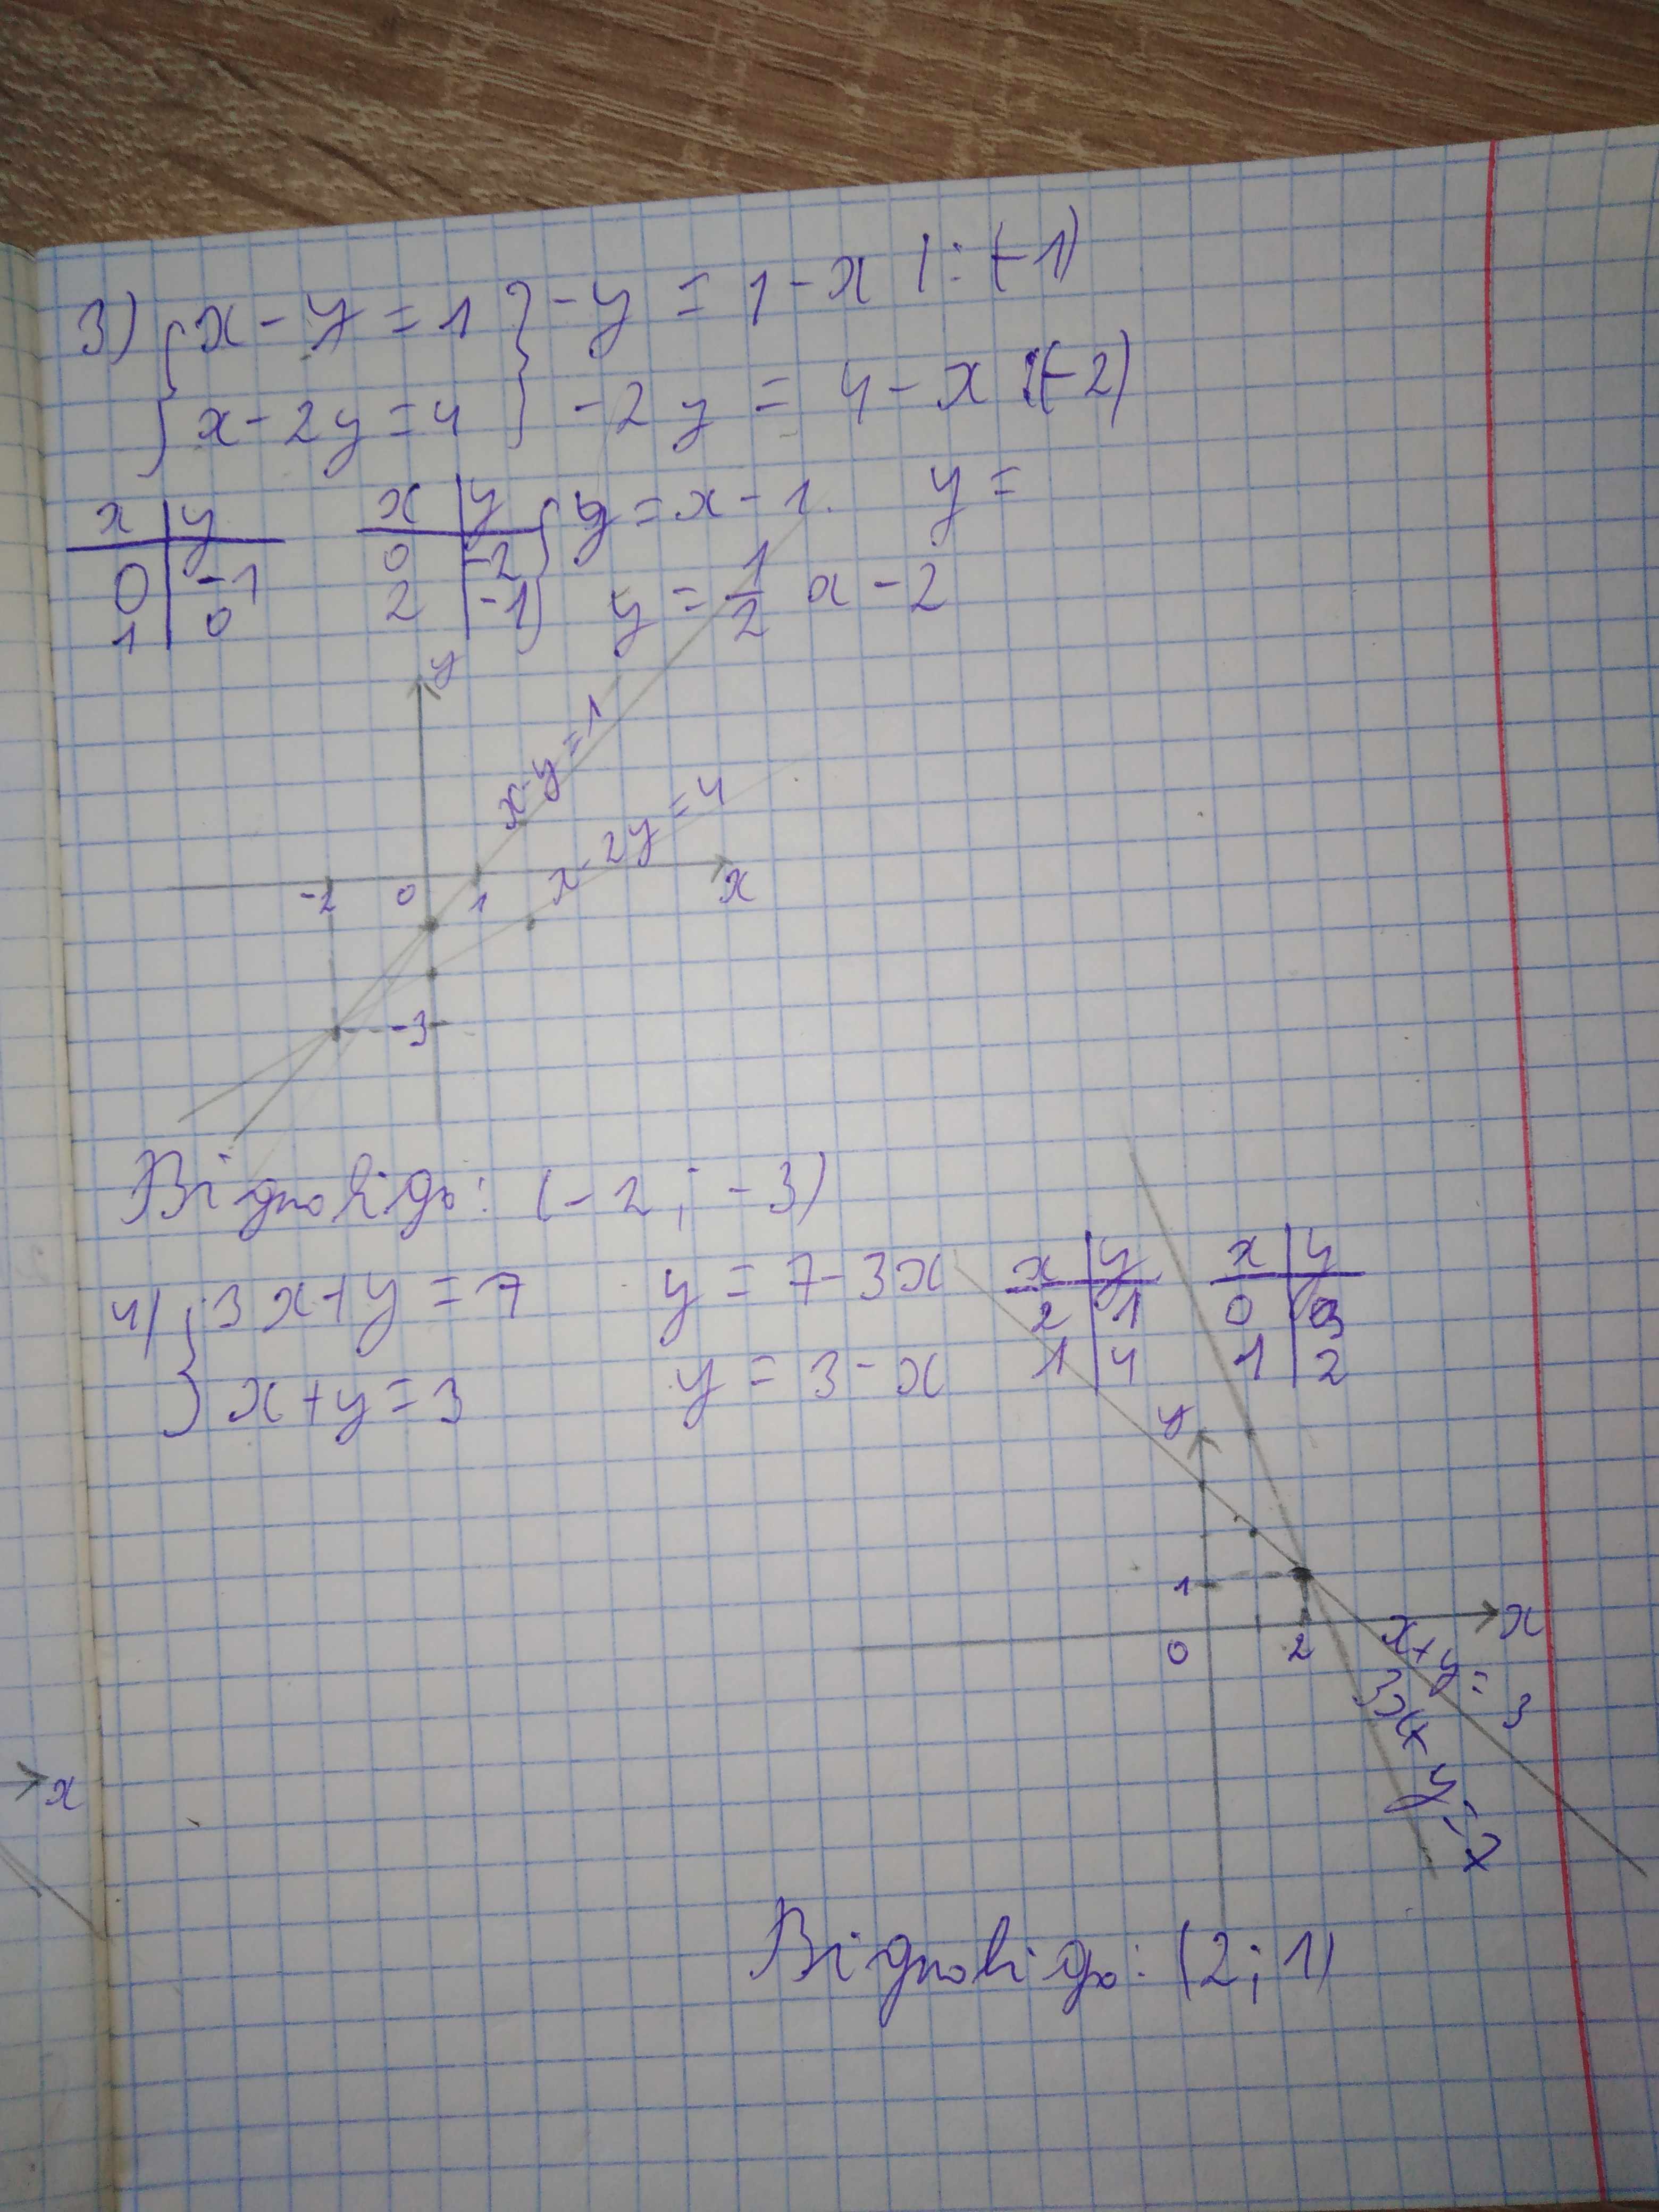 3) { x - y = 1 } -y = 1 - x |: (-1)
{ x - 2y = 4 } -2y = 4 - x :(-2)
x | y
0 | -1
1 | 0
x | y
0 | -2
2 | -1
{ y = x - 1. y =
y = 1/2 x - 2
y
x-y=1
x-2y=4
-2 0 1 x
-3
Відповідь: (-2; -3)
4) { 3x+y=7 y = 7-3x
x+y=3 y = 3-x
x | y
2 | 1
1 | 4
x | y
0 | 3
1 | 2
y
1
0 2 x
x+y=3
3x+y=7
x
Відповідь: (2; 1)